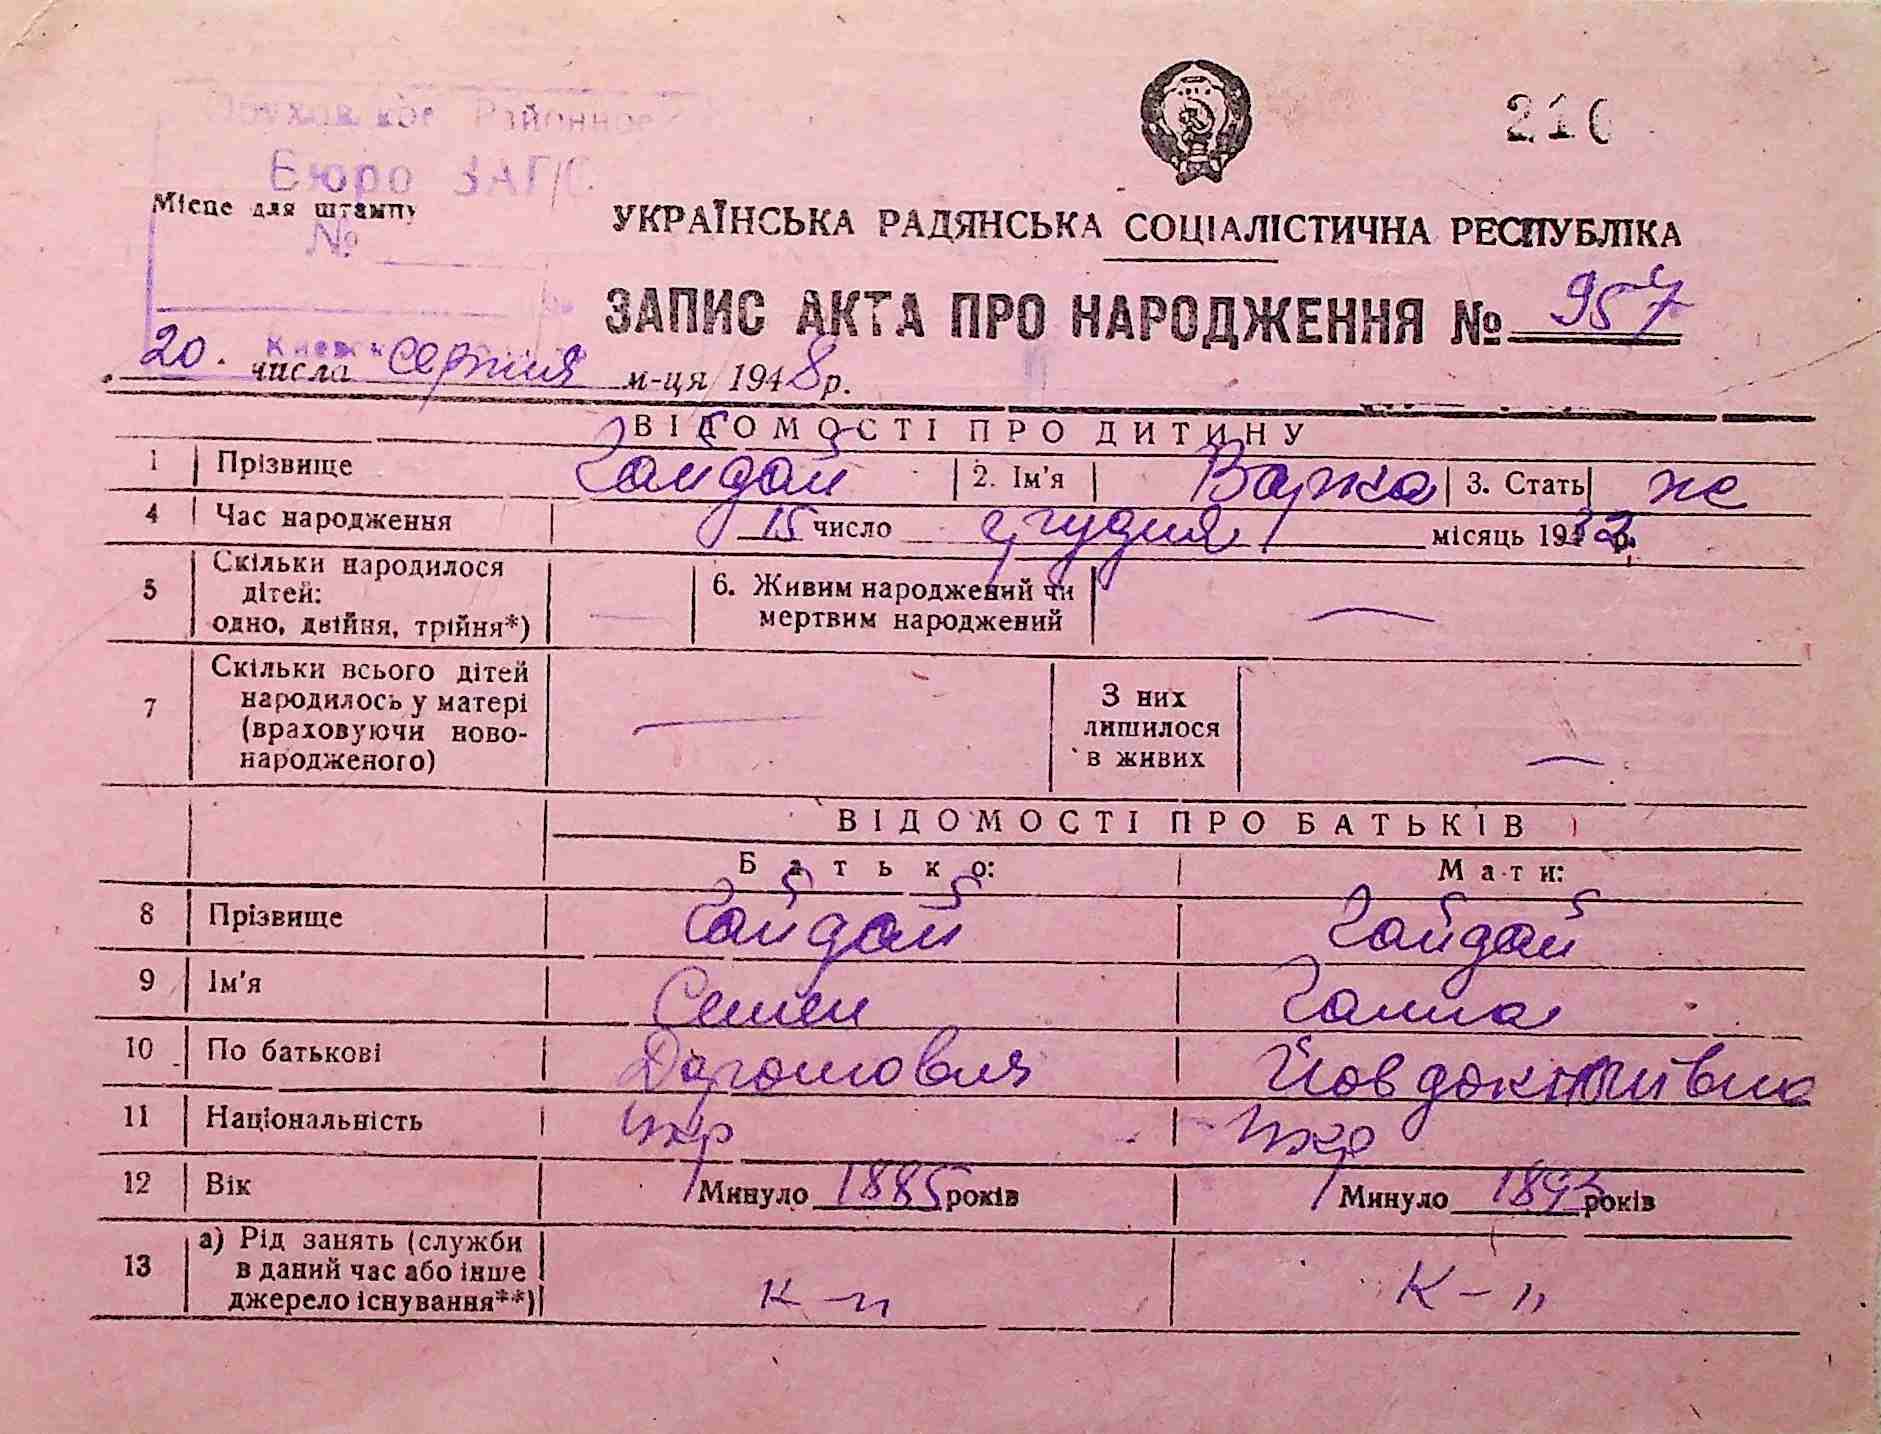 Районное
Бюро ЗАГС
216
Місце для штампу
№
УКРАЇНСЬКА РАДЯНСЬКА СОЦІАЛІСТИЧНА РЕСПУБЛІКА
ЗАПИС АКТА ПРО НАРОДЖЕННЯ № 957
20 числа серпня м-ця 1948 р.
ВІДОМОСТІ ПРО ДИТИНУ
1 Прізвище Гайдай 2. Ім'я Варка 3. Стать же
4 Час народження 15 число грудня місяць 1932 р.
5 Скільки народилося дітей: одно, двійня, трійня*) — 6. Живим народжений чи мертвим народжений —
7 Скільки всього дітей народилось у матері (враховуючи ново-народженого) — З них лишилося в живих —
ВІДОМОСТІ ПРО БАТЬКІВ
Батько: Мати:
8 Прізвище Гайдай Гайдай
9 Ім'я Семен Ганна
10 По батькові
11 Національність укр укр
12 Вік Минуло 1885 років Минуло 1893 років
13 а) Рід занять (служби в даний час або інше джерело існування**) к-п к-п